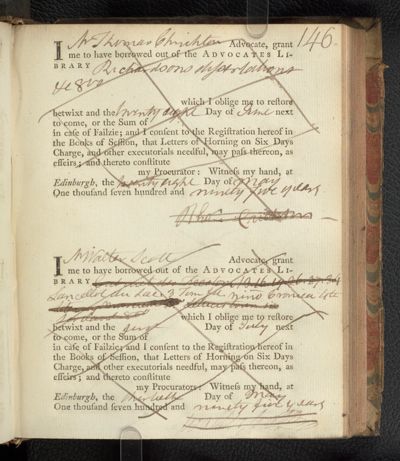 146.
I Mr Thomas Crichton Advocate, grant
me to have borrowed out of the ADVOCATES LI-
BRARY Richardsons dissertations
4to 8vo
which I oblige me to reſtore
betwixt and the twenty eight Day of June next
to come, or the Sum of
in caſe of Failzie; and I conſent to the Regiſtration hereof in
the Books of Seſſion, that Letters of Horning on Six Days
Charge, and other executorials needful, may paſs thereon, as
effeirs; and thereto conſtitute
my Procurator: Witneſs my hand, at
Edinburgh, the twenty eight Day of May
One thouſand ſeven hundred and ninety five years
Tho: Crichton
I Mr Walter Scott Advocate, grant
me to have borrowed out of the ADVOCATES LI-
BRARY
Lancelot du Lac 3 Tom
which I oblige me to reſtore
betwixt and the Day of July next
to come, or the Sum of
in caſe of Failzie; and I conſent to the Regiſtration hereof in
the Books of Seſſion, that Letters of Horning on Six Days
Charge, and other executorials needful, may paſs thereon, as
effeirs; and thereto conſtitute
my Procurator: Witneſs my hand, at
Edinburgh, the Day of May
One thouſand ſeven hundred and ninety five years